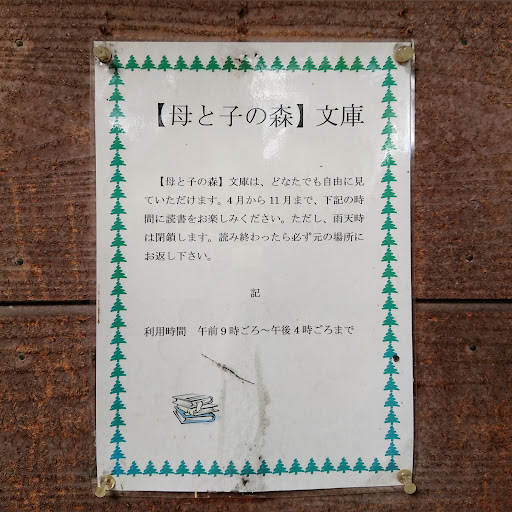 【母と子の森】文庫
【母と子の森】文庫は、どなたでも自由に見
ていただけます。4月から11月まで、下記の時
間に読書をお楽しみください。ただし、雨天時
は閉鎖します。読み終わったら必ず元の場所に
お返し下さい。
記
利用時間　午前9時ごろ～午後4時ごろまで